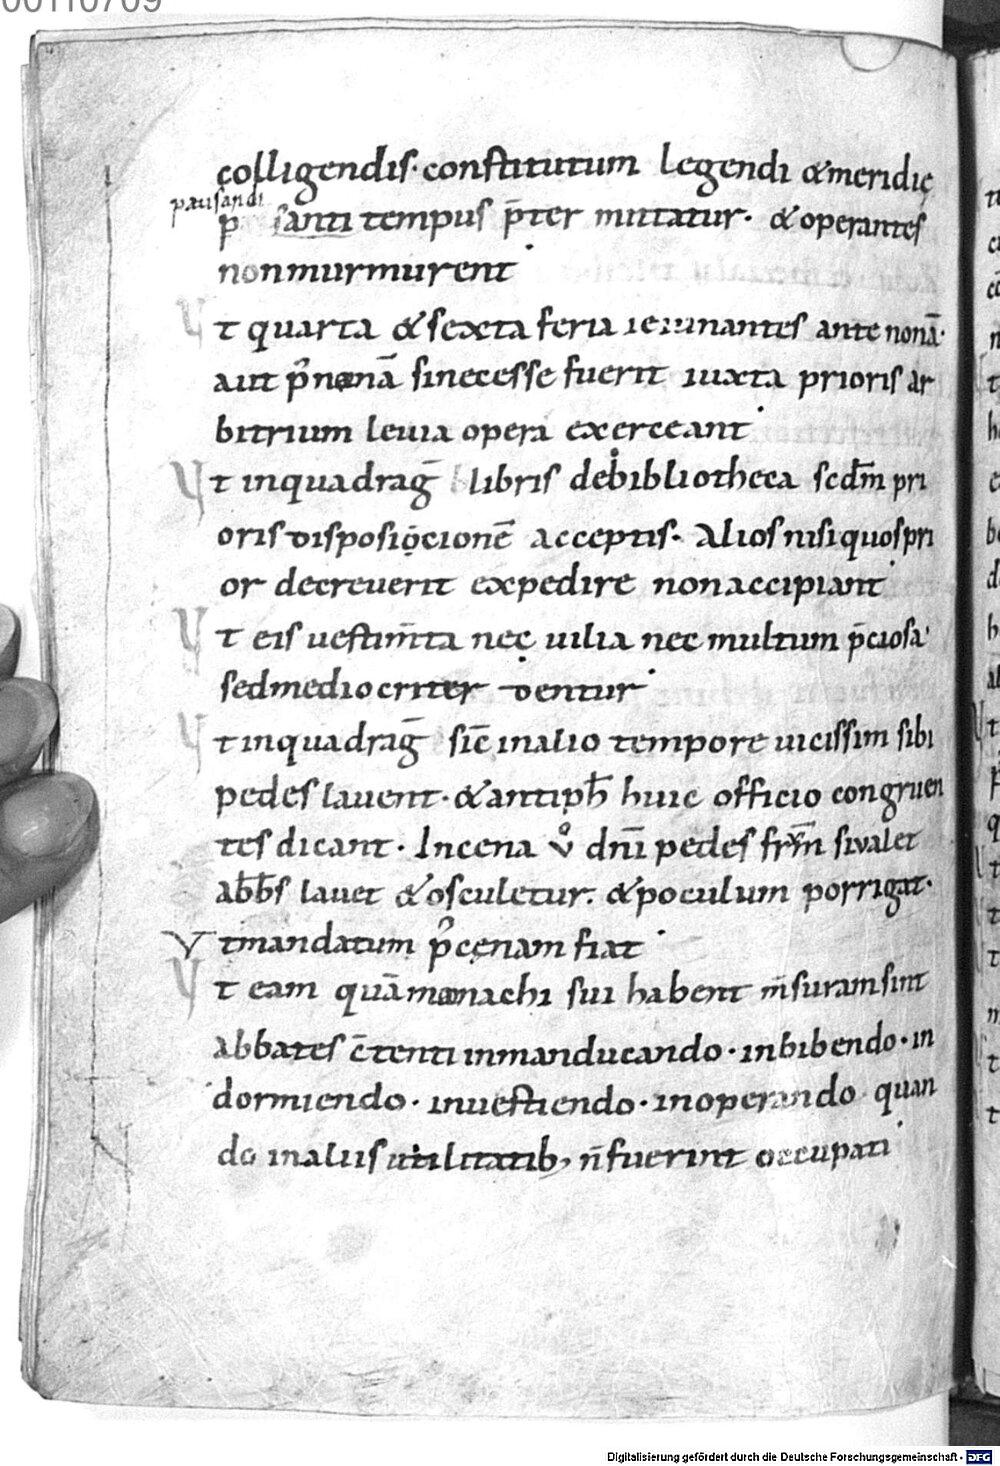 00110709
colligendis· constitutum legendi & meridię
pausandi
p santi tempus p̄ter mittatur· & operantes
non murmurent
Ut quarta & sexta feria ieiunantes ante nonā·
aut p̄ nonā si necesse fuerit iuxta prioris ar
bitrium leuia opera exerceant
Ut in quadraḡ libris de bibliotheca scd̄m pri
oris disposicionē acceptis· Alios nisi quos pri
or decreuerit expedire non accipiant
Ut eis uestim̄ta nec uilia nec multum p̄ciosa
sed mediocriter dentur
Ut in quadraḡ sic̄ in alio tempore uicissim sibi
pedes lauent· & antiph̄ huic officio congruen
tes dicant· In cena vͦ dn̄i pedes frm̄ si ualet
abb̄s lauet & osculetur· & poculum porrigat·
Ut mandatum p̄ cęnam fiat
Ut eam quā monachi sui habent m̄suram sint
abbates c̄tenti in manducando· in bibendo· in
dormiendo· in uestiendo· in operando· quan
do in aliis utilitatib; n̄ fuerint occupati
Digitalisierung gefördert durch die Deutsche Forschungsgemeinschaft - DFG